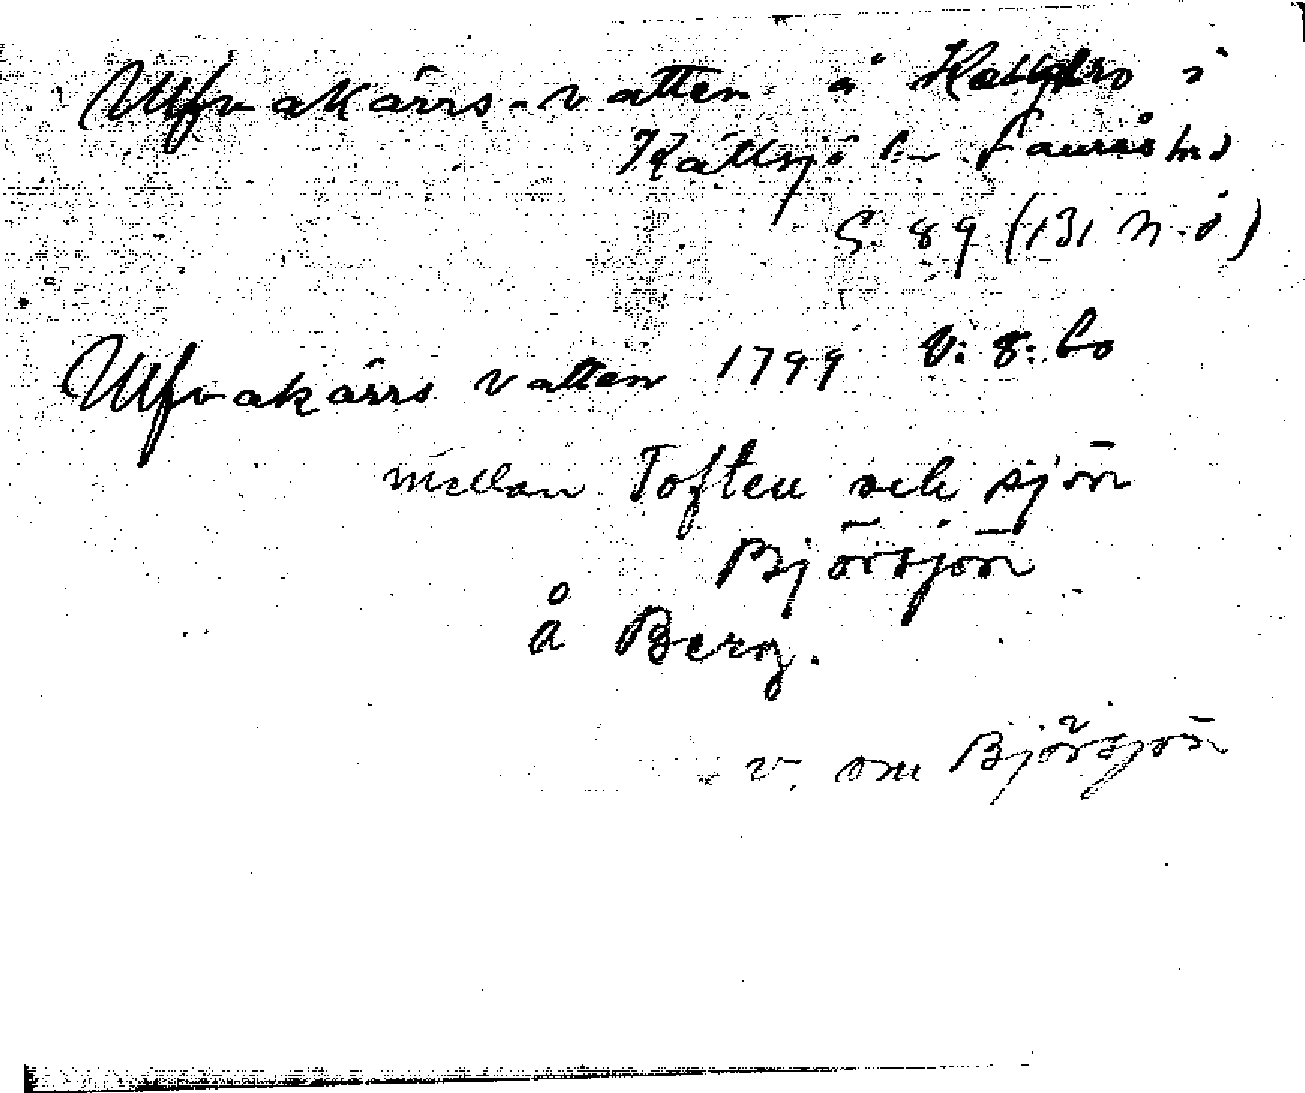 Ulfvakärrs-vatten å i
Källsjö Faurås hd
S. 89 (131 n.ö)
Ulfvakärrs vatten 1799 V: 8: bo
mellan Toften och sjön
Björsjön
å Berg.
v. om Björsjön